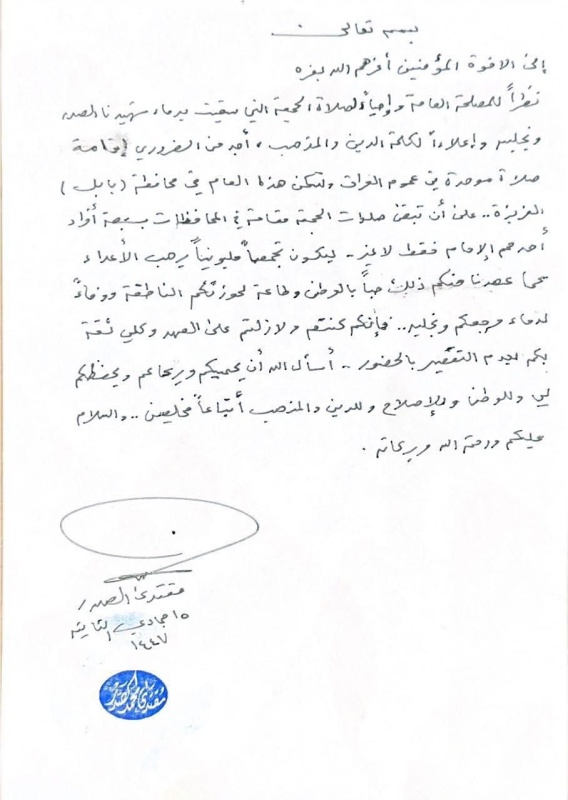 بسمه تعالى
إلى الاخوة المؤمنين أعزهم الله بعزه
نظراً للمصلحة العامة وإحياءً لصلاة الجمعة التي سقيت بدماء شهيدنا الصدر
ونجليه وإعلاءً لكلمة الدين والمذهب ، أجد من الضروري إقامة
صلاة موحدة في عموم العراق ولتكن هذا العام في محافظة (بابل)
العزيزة .. على أن تبقى صلوات الجمعة مقامة في المحافظات بسبعة أفراد
أحدهم الإمام فقط لا غير .. ليكون تجمعاً مليونياً يرهب الأعداء
كما عهدنا منكم ذلك حباً بالوطن وطاعة لحوزتكم الناطقة ووفاءً
لدماء مرجعكم ونجليه .. فإنكم كنتم ولازلتم على العهد وكلي ثقة
بكم بعدم التقصير بالحضور .. أسأل الله أن يحميكم ويرعاكم ويحفظكم
لي وللوطن وللإصلاح وللدين والمذهب أتباعاً مخلصين .. والسلام
عليكم ورحمة الله وبركاته .
مقتدى الصدر
١٥ جمادى الثانية
١٤٤٧